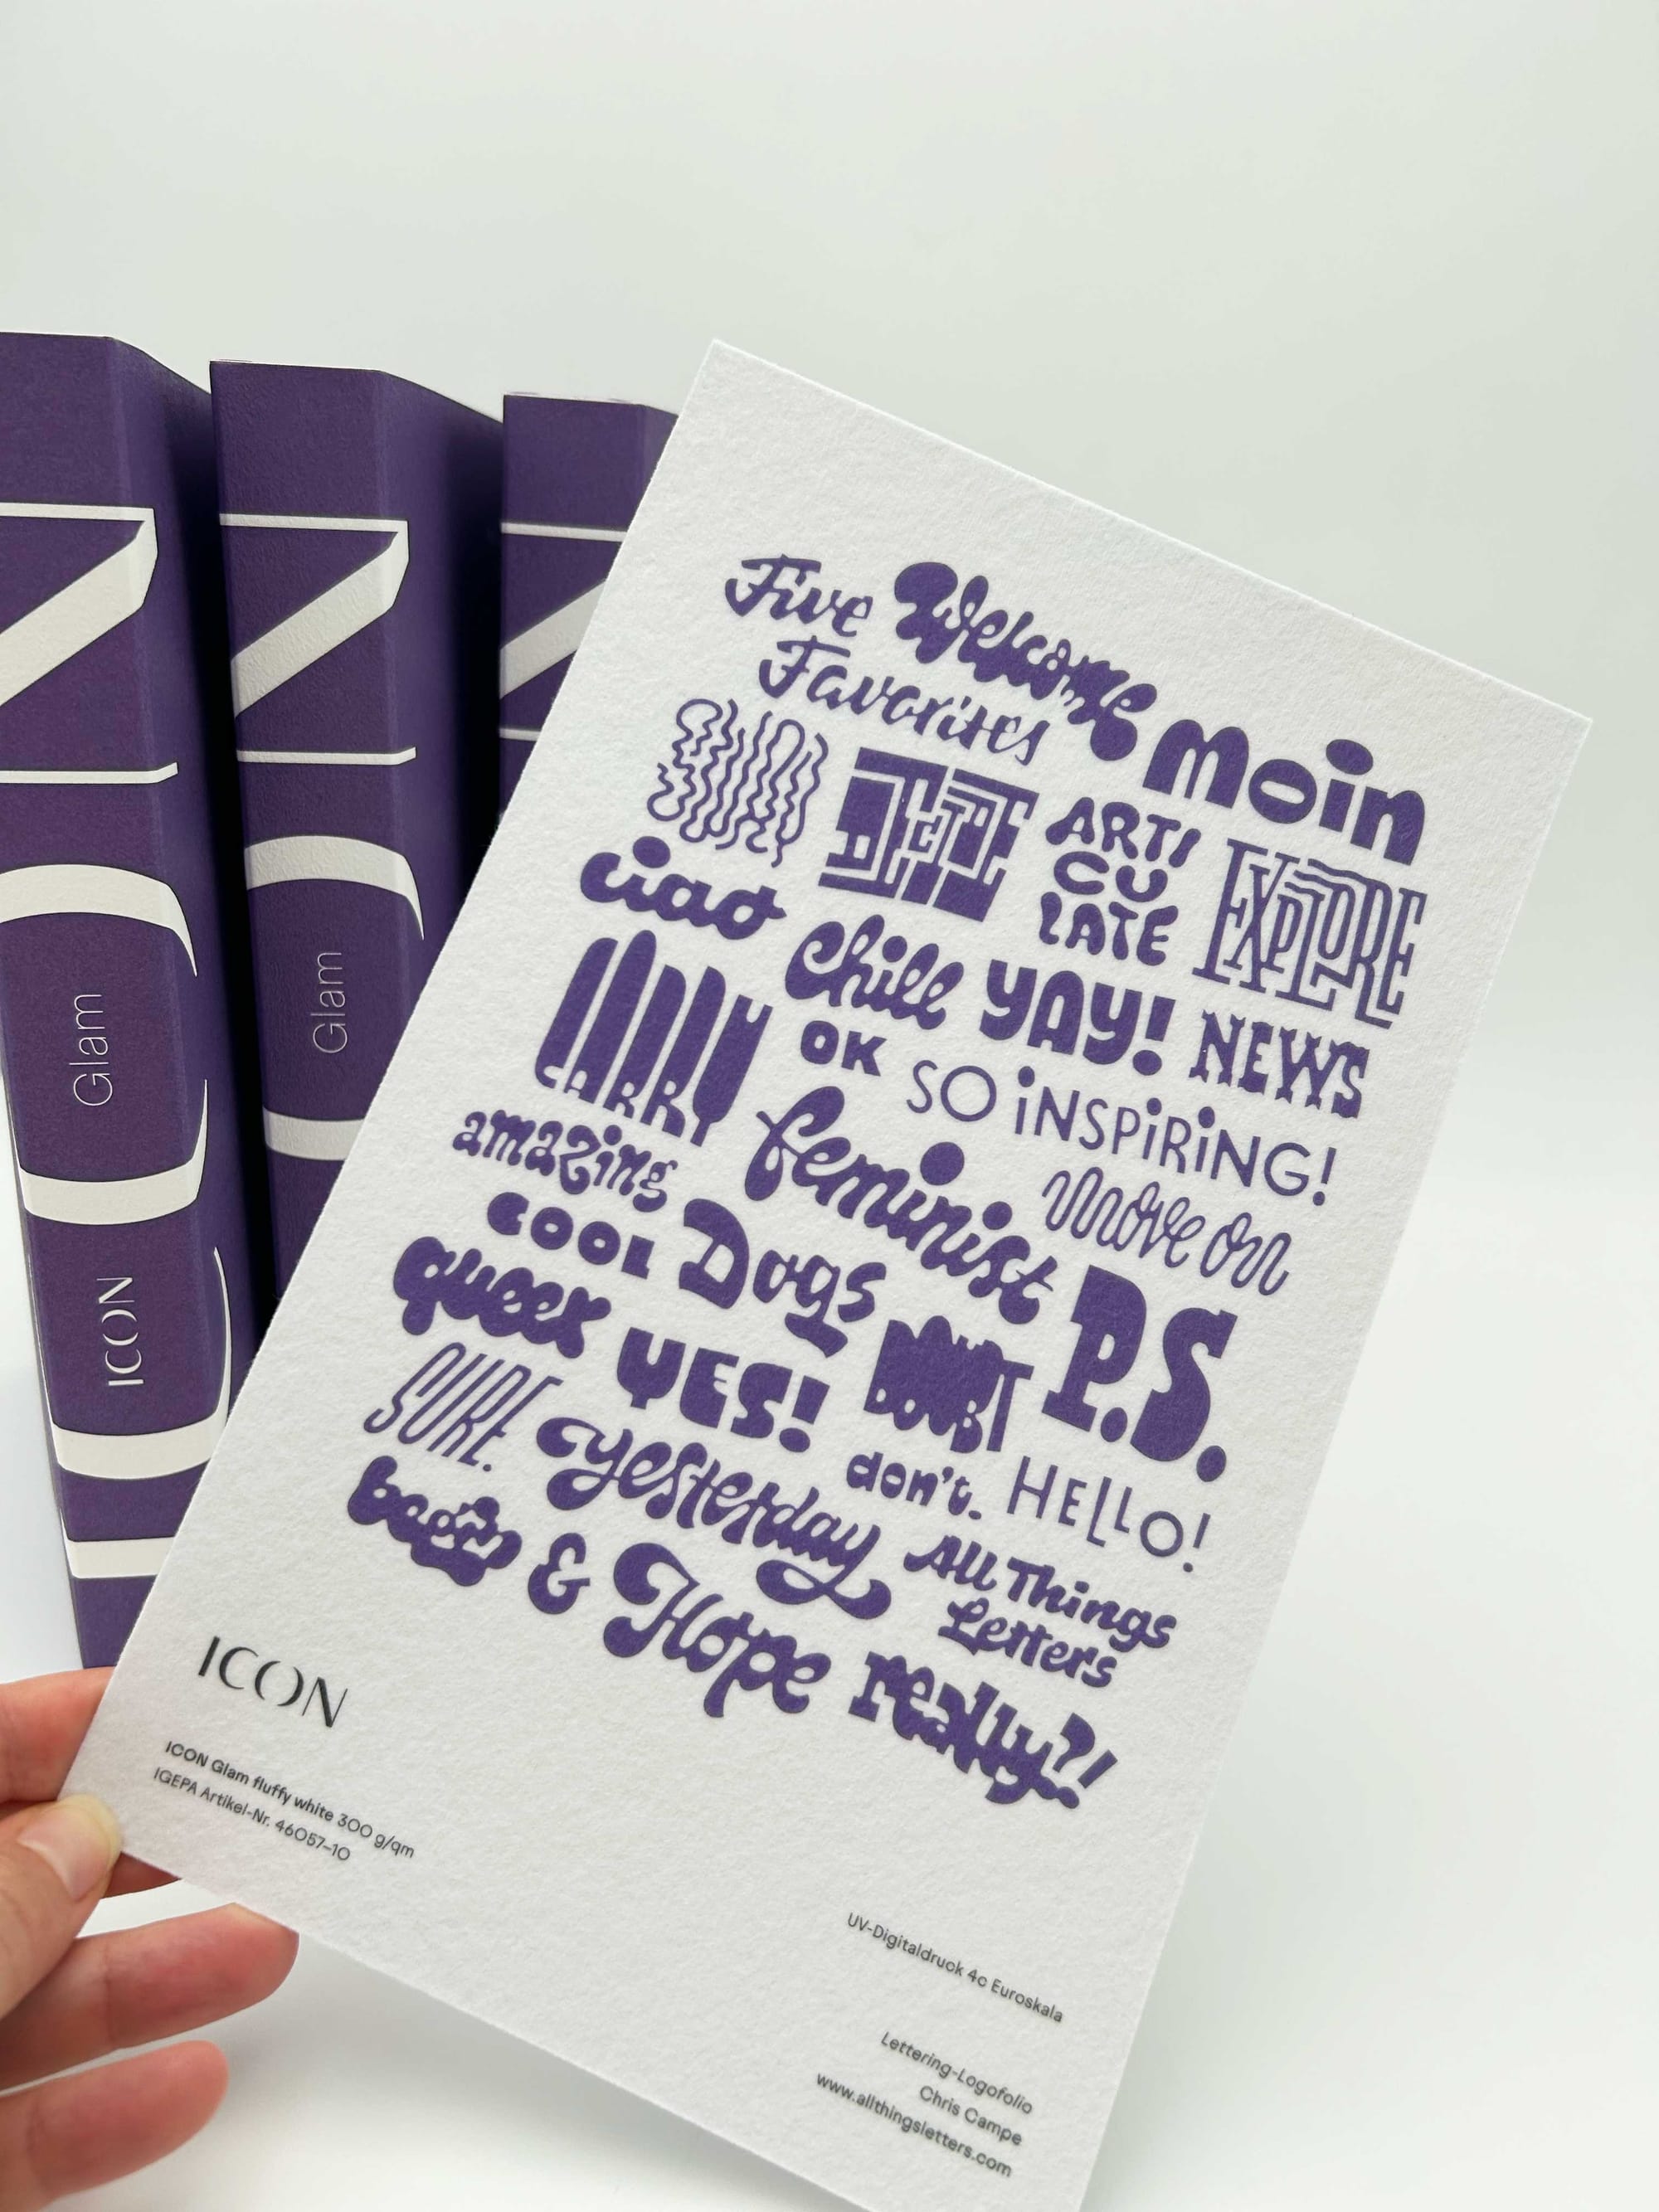 Five
Favorites
Welcome
Moin
ARTI
CU
LATE
EXPLORE
ciao
Chill
YAY!
NEWS
CARRY
OK
SO INSPIRING!
amazing
feminist
move on
COOL
Dogs
P.S.
queer
YES!
DOUBT
SURE.
yesterday
don't.
HELLO!
All Things
Letters
&
Hope
really?!
ICON
ICON Glam fluffy white 300 g/qm
IGEPA Artikel-Nr. 46057-10
UV-Digitaldruck 4c Euroskala
Lettering-Logofolio
Chris Campe
www.allthingsletters.com
ICON Glam
Glam